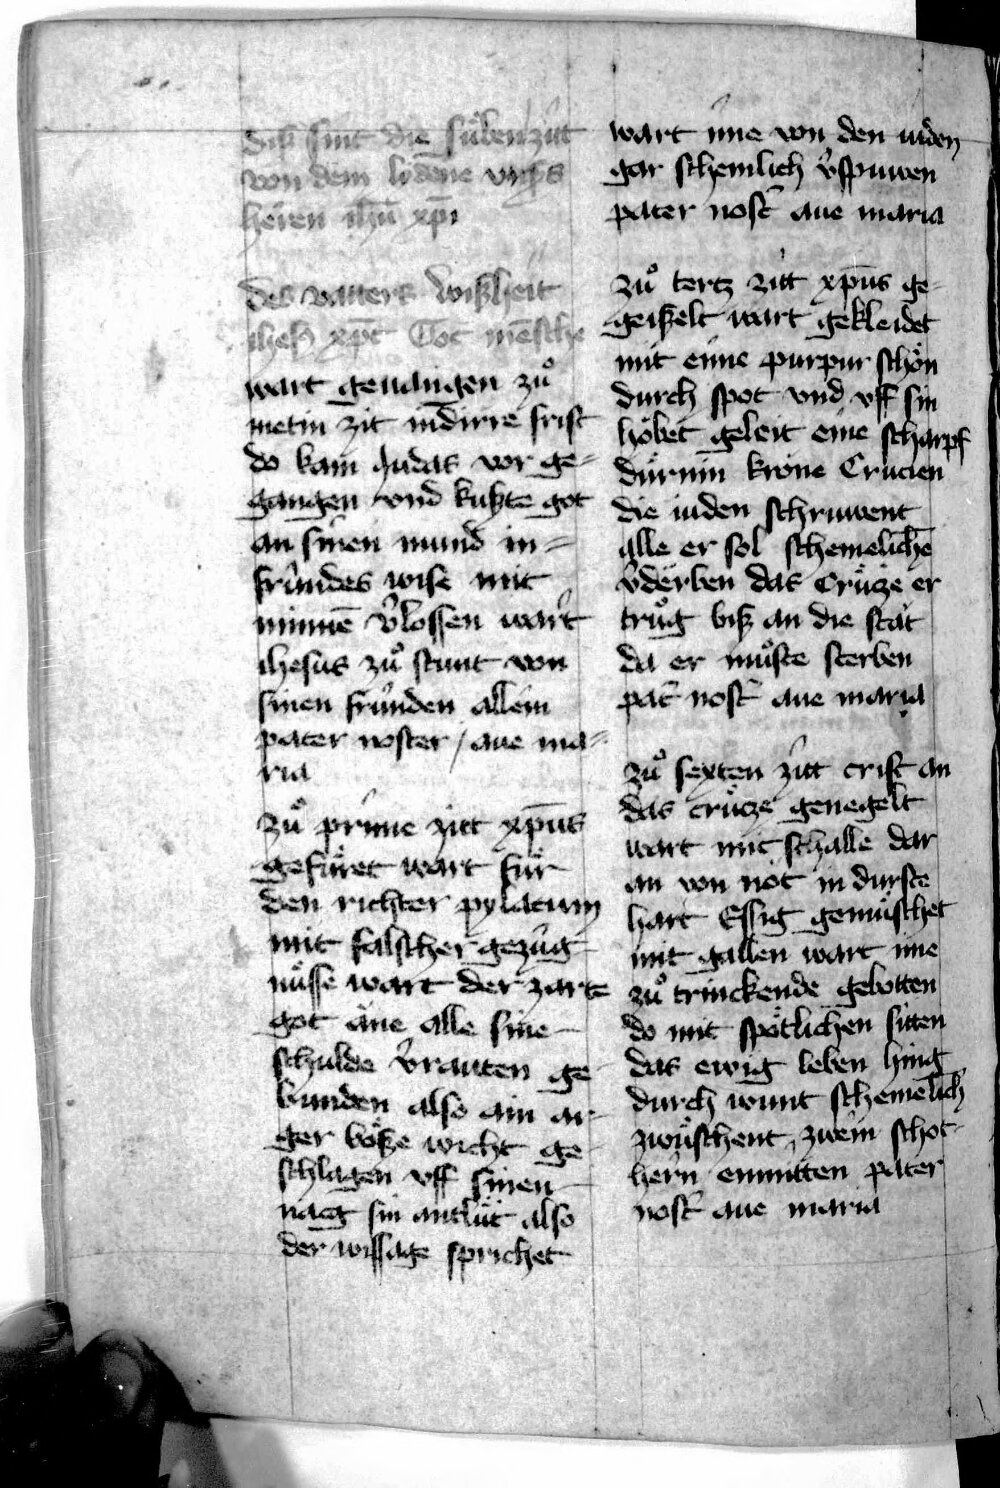 diſz ſint die ſüben zitt
von dem lidene vnſers
heren ihū xpi
des vatters wiſzheit
iheſ xpc Got mēſche
wart geuangen zuͦ
metin zit in dirre friſt
do kam Judas vor ge⸗
gangen vnd kuſzte got
an ſinen mund in⸗
frúndes wiſe mit
minnē v̾loſſen wart
iheſus zuͦ ſtunt von
ſinen frúnden allein
pater noſter / aue ma⸗
ria
zuͦ prime zitt xp̄us
gefuͤret wart fuͤr
den richter pylatum
mit falſcher gezúg
nuͤſſe wart der zarte
got āne alle ſine
ſchulde v̾rauten ge
bunden alſo ain ar
ger boͤſze wicht ge
ſchlagen vff ſinen
nacg ſin antluͤt alſo
der wiſſage ſprichet
wart ime von den iuden
gar ſchemlich v̾ſpuwen
pater noſt̾ aue maria
zuͦ tertz zitt xp̄us ge⸗
geiſzelt wart gekleidet
mit eime purpur ſchoͤn
durch ſpot vnd vff ſin
hoͤbet geleit eine ſcharpf
duͤrnin krone Crucien
die iuden ſchruwent
alle er ſol ſchemelichē
v̾derben das Cruͤtze er
truͦg biſz an die ſtat
da er muͦſte ſterben
pat̾ noſt̾ aue maria
zuͦ ſexten zitt criſt an
das cruͤtze genegelt
wart mit ſchalle dar
an von not in durſte
hart Eſſig gemuͤſchet
mit gallen wart ime
zuͦ trinckende gebotten
do mit ſpoͤtlichen ſitten
das ewig leben hing
durch wunt ſchemelich
zwuͤſchent zwein ſchot⸗
hern enmitten pater
noſt̾ aue maria